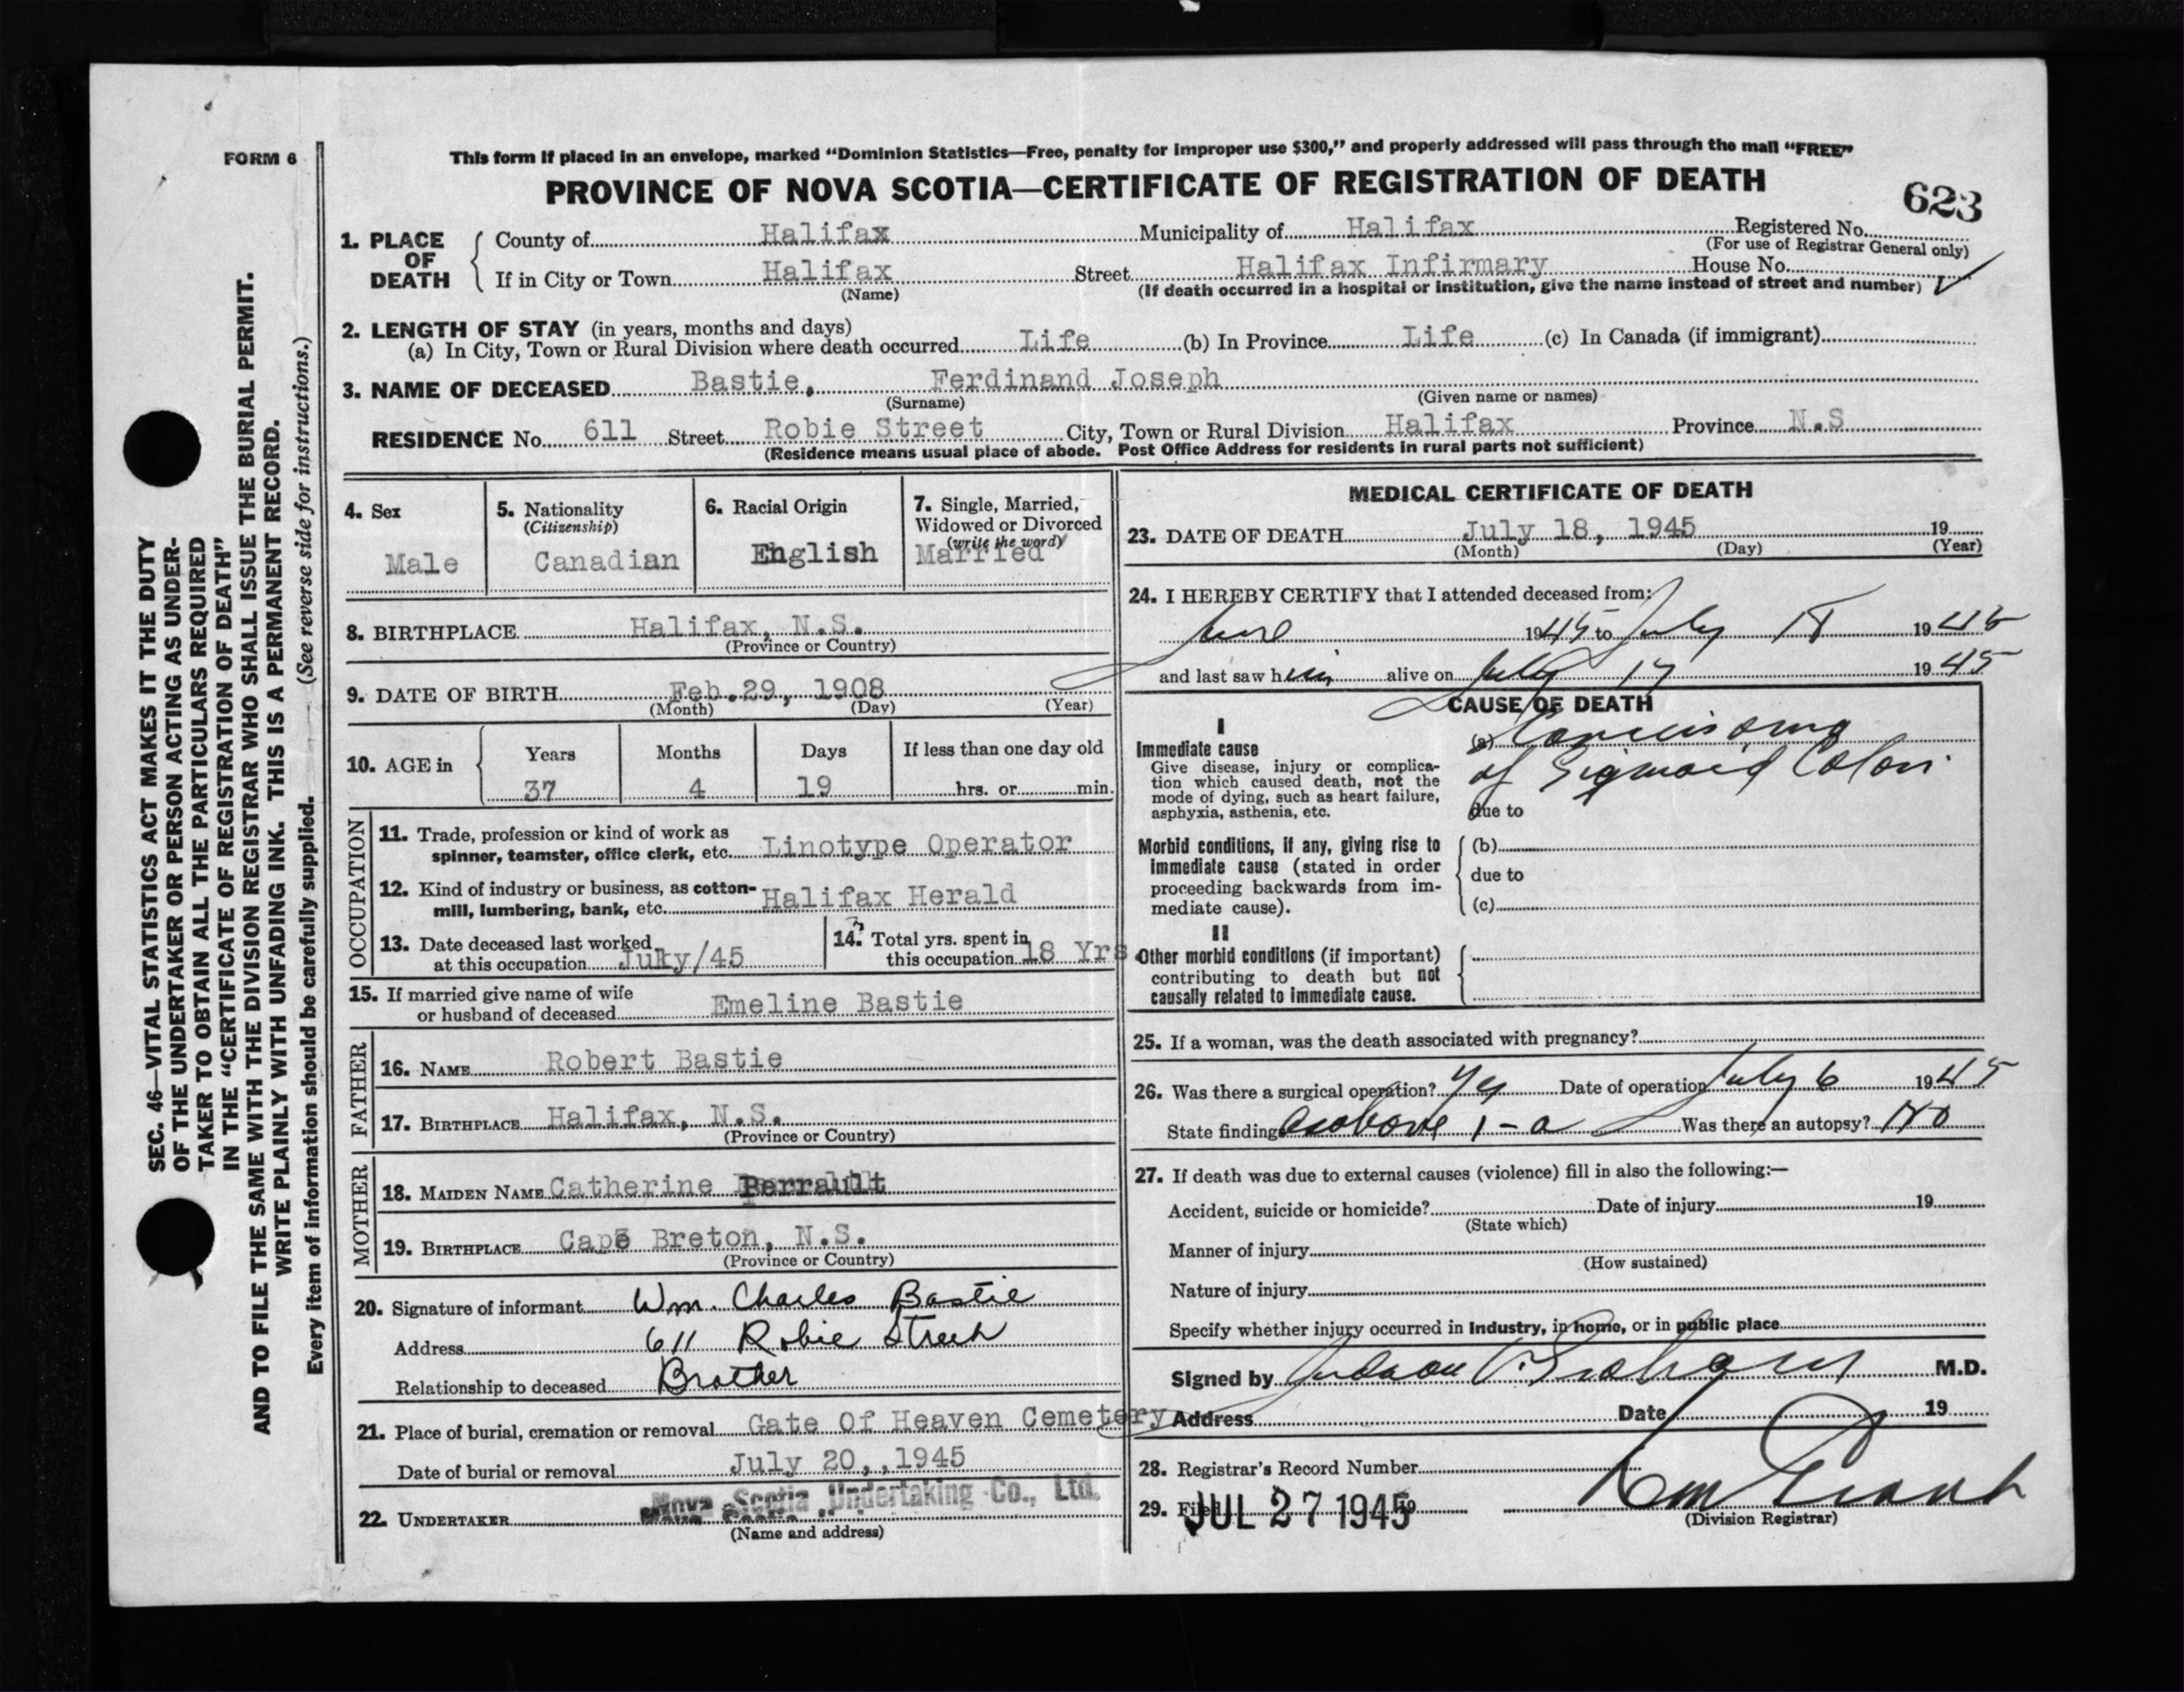 FORM 6
This form if placed in an envelope, marked “Dominion Statistics—Free, penalty for improper use $300,” and properly addressed will pass through the mail “FREE”
PROVINCE OF NOVA SCOTIA—CERTIFICATE OF REGISTRATION OF DEATH
623
1. PLACE OF DEATH County of Halifax Municipality of Halifax Registered No.
(For use of Registrar General only)
If in City or Town Halifax Street Halifax Infirmary House No.
(Name) (If death occurred in a hospital or institution, give the name instead of street and number)
2. LENGTH OF STAY (in years, months and days)
(a) In City, Town or Rural Division where death occurred Life (b) In Province Life (c) In Canada (if immigrant)
3. NAME OF DECEASED Bastie, Ferdinand Joseph
(Surname) (Given name or names)
RESIDENCE No. 611 Street Robie Street City, Town or Rural Division Halifax Province N.S
(Residence means usual place of abode. Post Office Address for residents in rural parts not sufficient)
4. Sex
Male
5. Nationality
(Citizenship)
Canadian
6. Racial Origin
English
7. Single, Married,
Widowed or Divorced
(write the word)
Married
8. BIRTHPLACE Halifax, N.S.
(Province or Country)
9. DATE OF BIRTH Feb.29, 1908
(Month) (Day) (Year)
10. AGE in Years Months Days If less than one day old
37 4 19 hrs. or min.
OCCUPATION
11. Trade, profession or kind of work as
spinner, teamster, office clerk, etc. Linotype Operator
12. Kind of industry or business, as cotton-
mill, lumbering, bank, etc. Halifax Herald
13. Date deceased last worked
at this occupation July/45
14. Total yrs. spent in
this occupation 18 Yrs
15. If married give name of wife
or husband of deceased Emeline Bastie
FATHER
16. NAME Robert Bastie
17. BIRTHPLACE Halifax, N.S.
(Province or Country)
MOTHER
18. MAIDEN NAME Catherine Perrault
19. BIRTHPLACE Cape Breton, N.S.
(Province or Country)
20. Signature of informant Wm. Charles Bastie
Address 611 Robie Street
Relationship to deceased Brother
21. Place of burial, cremation or removal Gate Of Heaven Cemetery
Date of burial or removal July 20,,1945
22. UNDERTAKER Nova Scotia Undertaking Co., Ltd.
(Name and address)
MEDICAL CERTIFICATE OF DEATH
23. DATE OF DEATH July 18, 1945 19
(Month) (Day) (Year)
24. I HEREBY CERTIFY that I attended deceased from:
June 1945 to July 18 1945
and last saw him alive on July 17 1945
CAUSE OF DEATH
I
Immediate cause
Give disease, injury or complica-
tion which caused death, not the
mode of dying, such as heart failure,
asphyxia, asthenia, etc.
(a) Carcinoma
of Sigmoid Colon
due to
Morbid conditions, if any, giving rise to
immediate cause (stated in order
proceeding backwards from im-
mediate cause).
(b)
due to
(c)
II
Other morbid conditions (if important)
contributing to death but not
causally related to immediate cause.
25. If a woman, was the death associated with pregnancy?
26. Was there a surgical operation? Yes Date of operation July 6 1945
State finding as above 1-a Was there an autopsy? No
27. If death was due to external causes (violence) fill in also the following:—
Accident, suicide or homicide? Date of injury 19
(State which)
Manner of injury
(How sustained)
Nature of injury
Specify whether injury occurred in industry, in home, or in public place
Signed by Judson V. Graham M.D.
Address Date 19
28. Registrar's Record Number
29. Filed JUL 27 1945 19
(Division Registrar)
SEC. 46—VITAL STATISTICS ACT MAKES IT THE DUTY
OF THE UNDERTAKER OR PERSON ACTING AS UNDER-
TAKER TO OBTAIN ALL THE PARTICULARS REQUIRED
IN THE “CERTIFICATE OF REGISTRATION OF DEATH”
AND TO FILE THE SAME WITH THE DIVISION REGISTRAR WHO SHALL ISSUE THE BURIAL PERMIT.
WRITE PLAINLY WITH UNFADING INK. THIS IS A PERMANENT RECORD.
Every item of information should be carefully supplied. (See reverse side for instructions.)